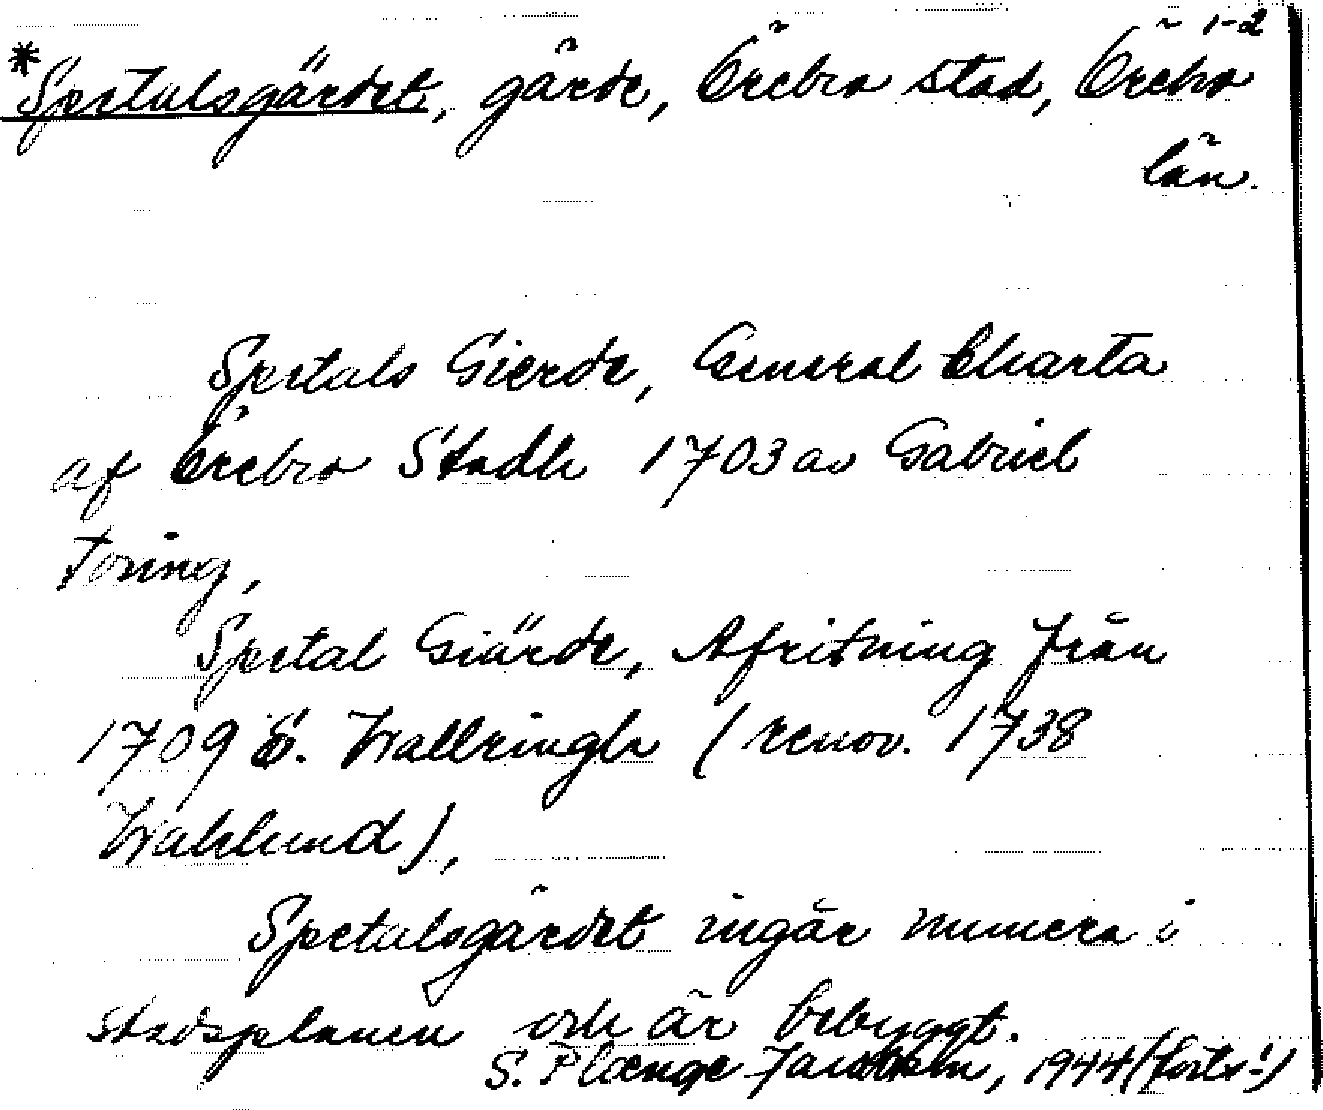 1-2
*Spetalsgärdet, gärde, Örebro stad, Örebro
län.
Spetals Gierde, General Charta
af Örebro Stadh 1703 av Gabriel
Toring,
Spetal Giärde, Afritning från
1709 E. Wallringh (renov. 1738
Waklund),
Spetalsgärdet ingår numera i
stadsplanen och är bebyggt.
S. Plænge Jacobson, 1944 (forts!)